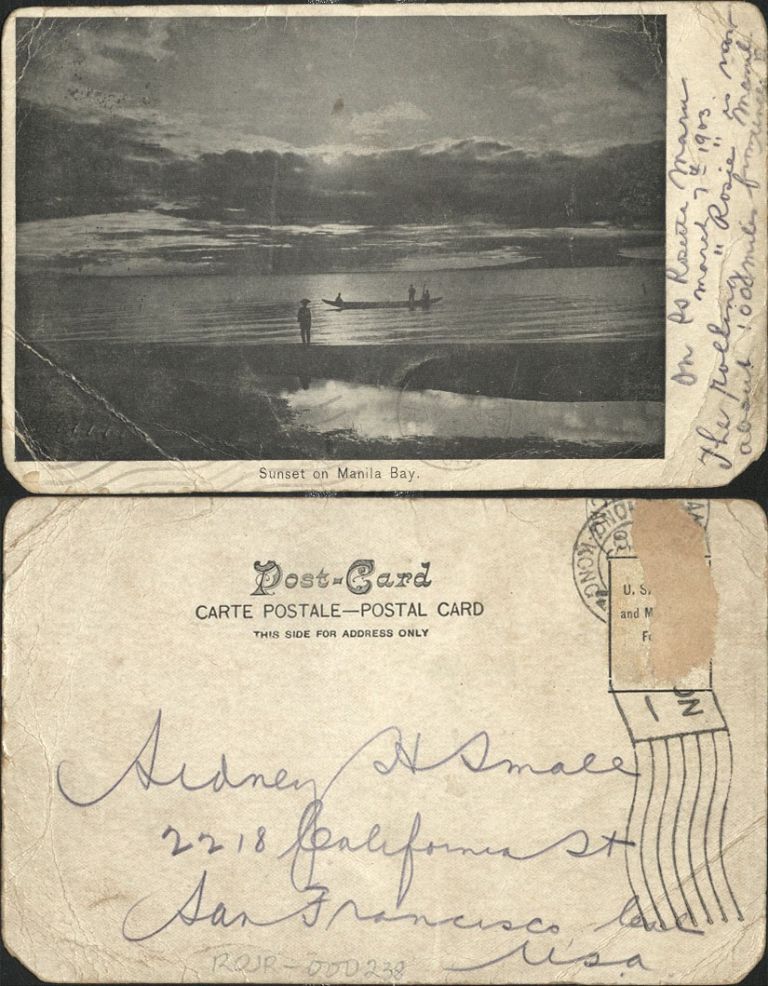 Sunset on Manila Bay.
On SS Rosetta Maru
March 7th 1903
The rolling "Rosie" is now
about 100 miles from Manila
Post-Card
CARTE POSTALE—POSTAL CARD
THIS SIDE FOR ADDRESS ONLY
HONG-KONG
U. S.
and M
Fo
NO
1
Sidney H Small
2218 California St
San Francisco Cal
USA
ROJR-000238